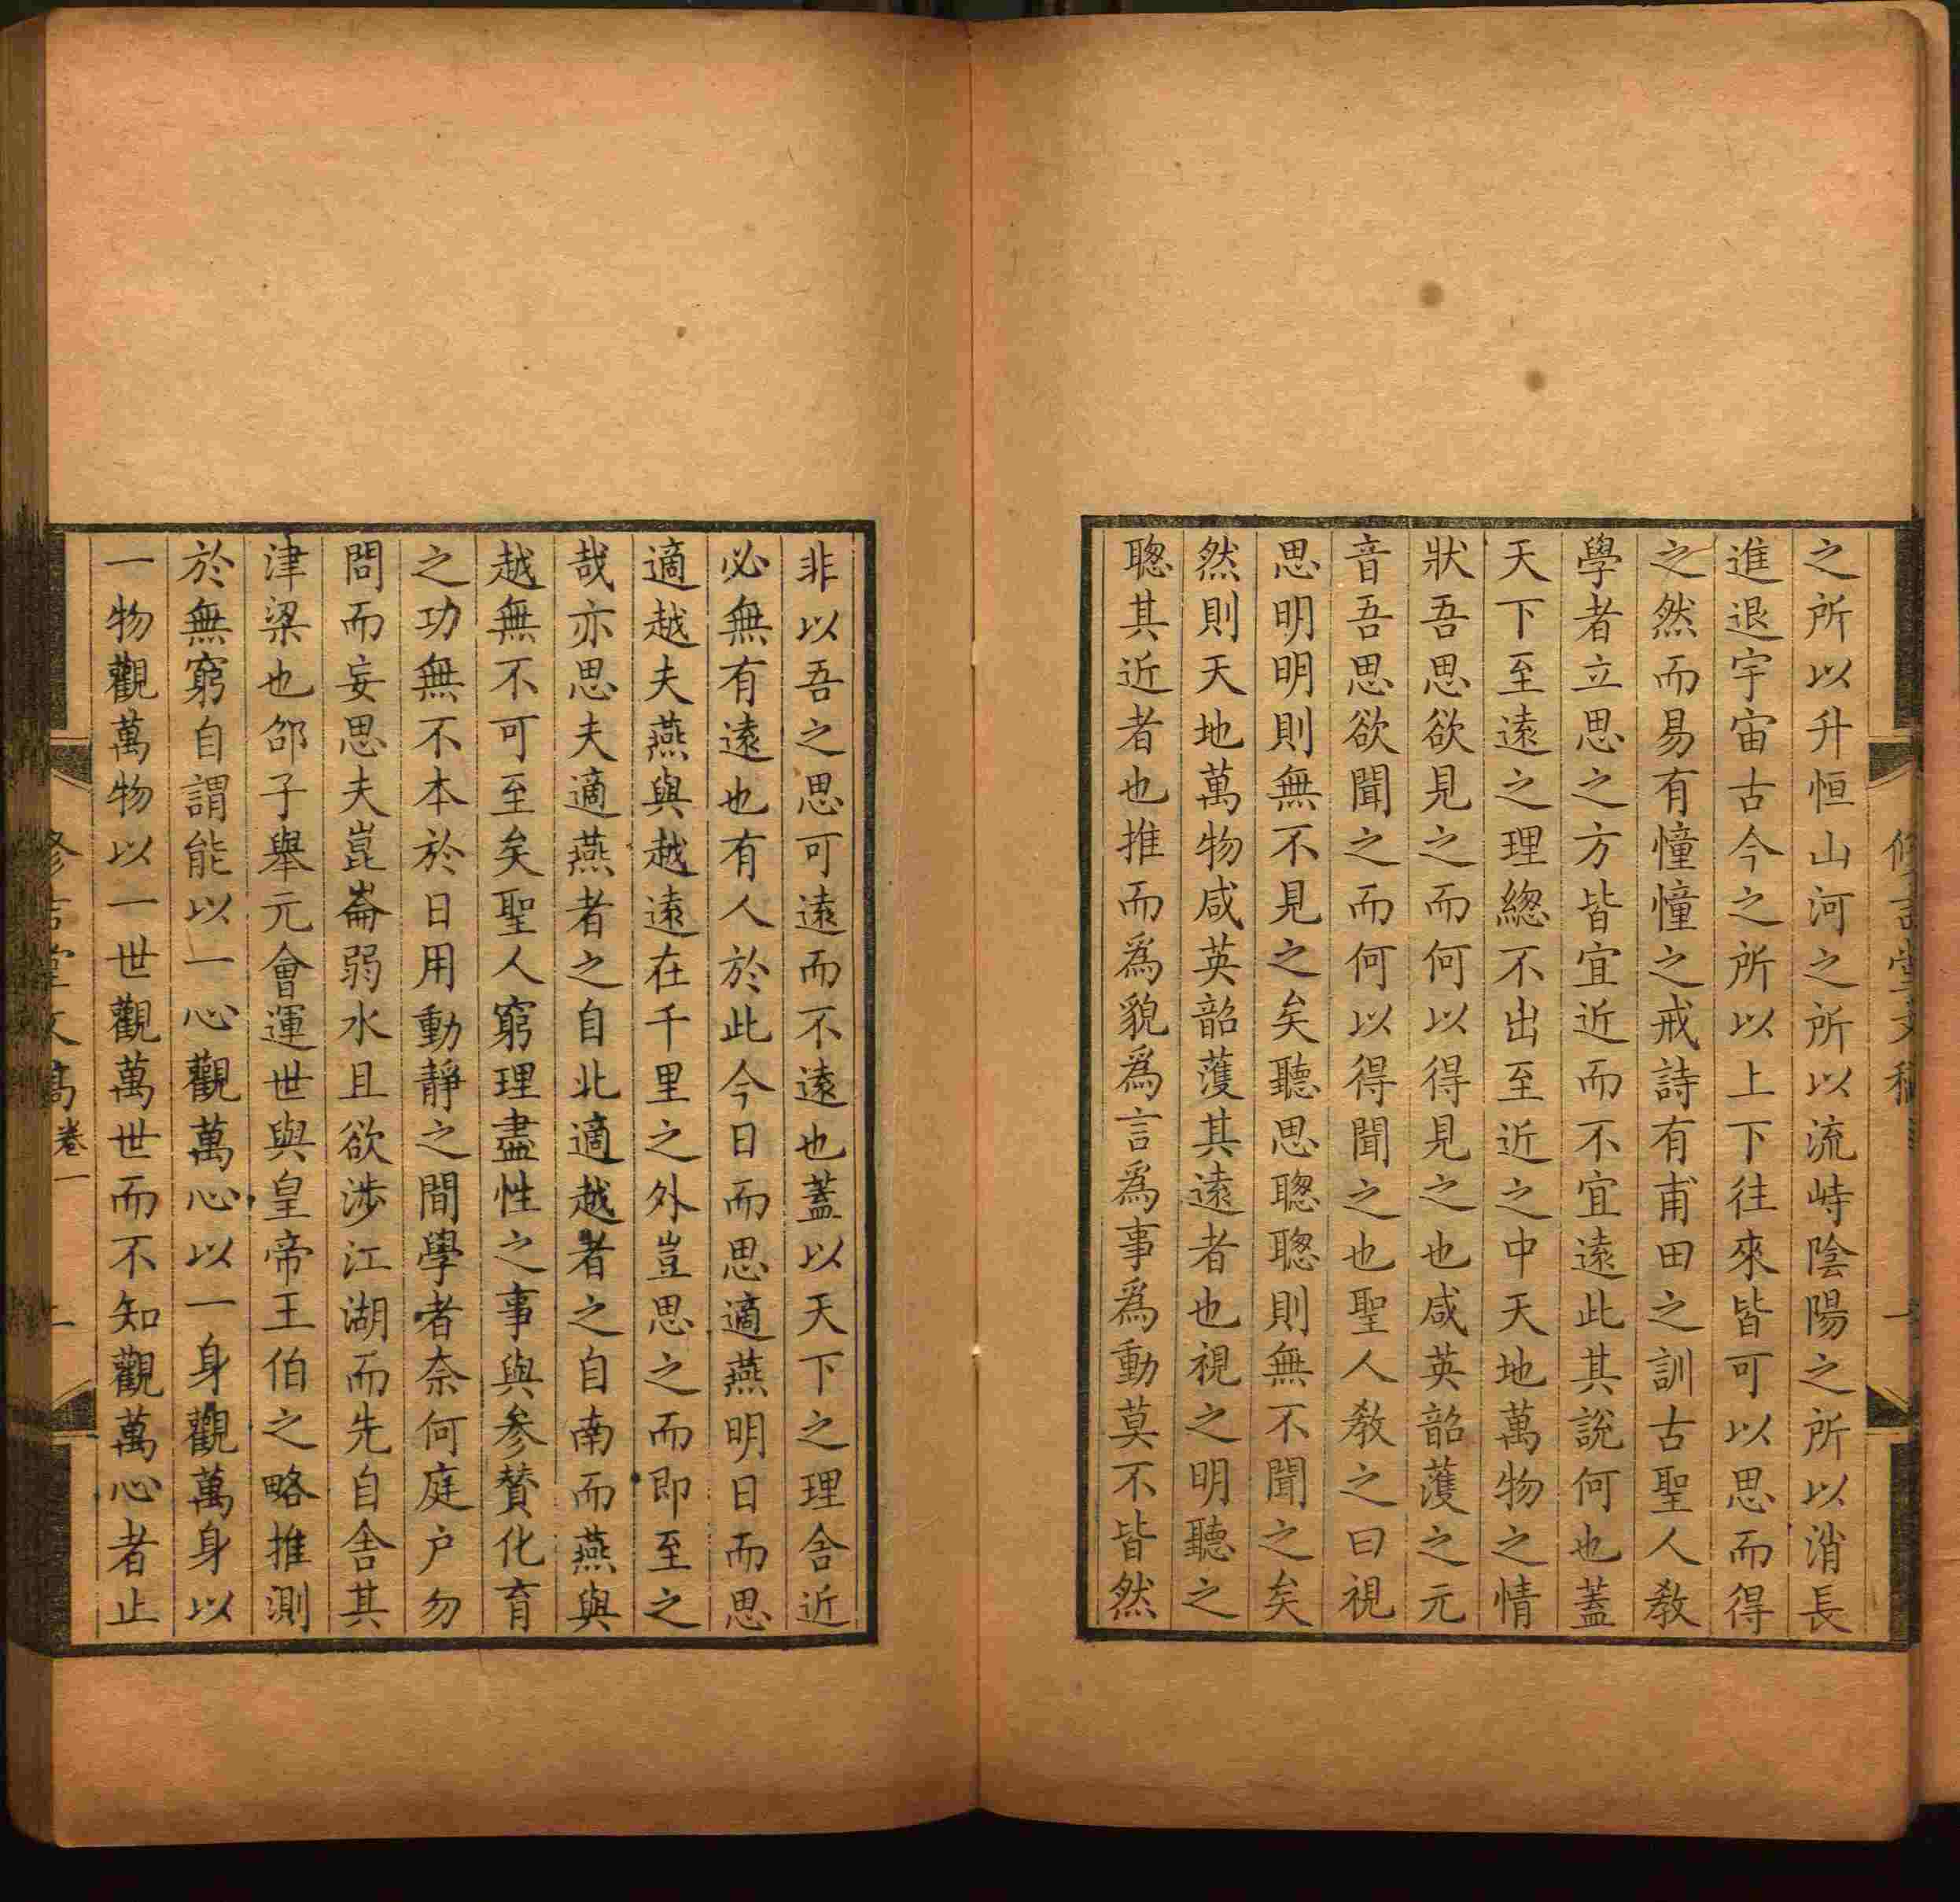 之所以升恒山河之所以流峙陰陽之所以消長
進退宇宙古今之所以上下往來皆可以思而得
之然而易有憧憧之戒詩有甫田之訓古聖人教
學者立思之方皆宜近而不宜遠此其說何也蓋
天下至遠之理總不出至近之中天地萬物之情
狀吾思欲見之而何以得見之也咸英韶頀之元
音吾思欲聞之而何以得聞之也聖人教之曰視
思明明則無不見之矣聽思聰聰則無不聞之矣
然則天地萬物咸英韶頀其遠者也視之明聽之
聰其近者也推而爲貌爲言爲事爲動莫不皆然
非以吾之思可遠而不遠也蓋以天下之理舍近
必無有遠也有人於此今日而思適燕明日而思
適越夫燕與越遠在千里之外豈思之而即至之
哉亦思夫適燕者之自北適越者之自南而燕與
越無不可至矣聖人窮理盡性之事與參贊化育
之功無不本於日用動靜之間學者奈何庭户勿
問而妄思夫崑崙弱水且欲涉江湖而先自舍其
津梁也邵子舉元會運世與皇帝王伯之略推測
於無窮自謂能以一心觀萬心以一身觀萬身以
一物觀萬物以一世觀萬世而不知觀萬心者止
堂文稿 卷一